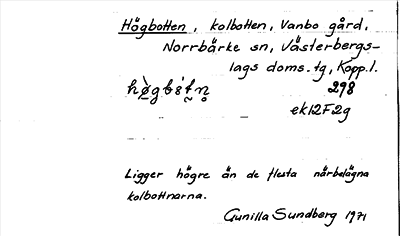 Högbotten, kolbotten, Vanbo gård,
Norrbärke sn, Västerbergs-
lags doms. tg, Kopp. l.
298
ek12F2g
Ligger högre än de flesta närbelägna
kolbottnarna.
Gunilla Sundberg 1971